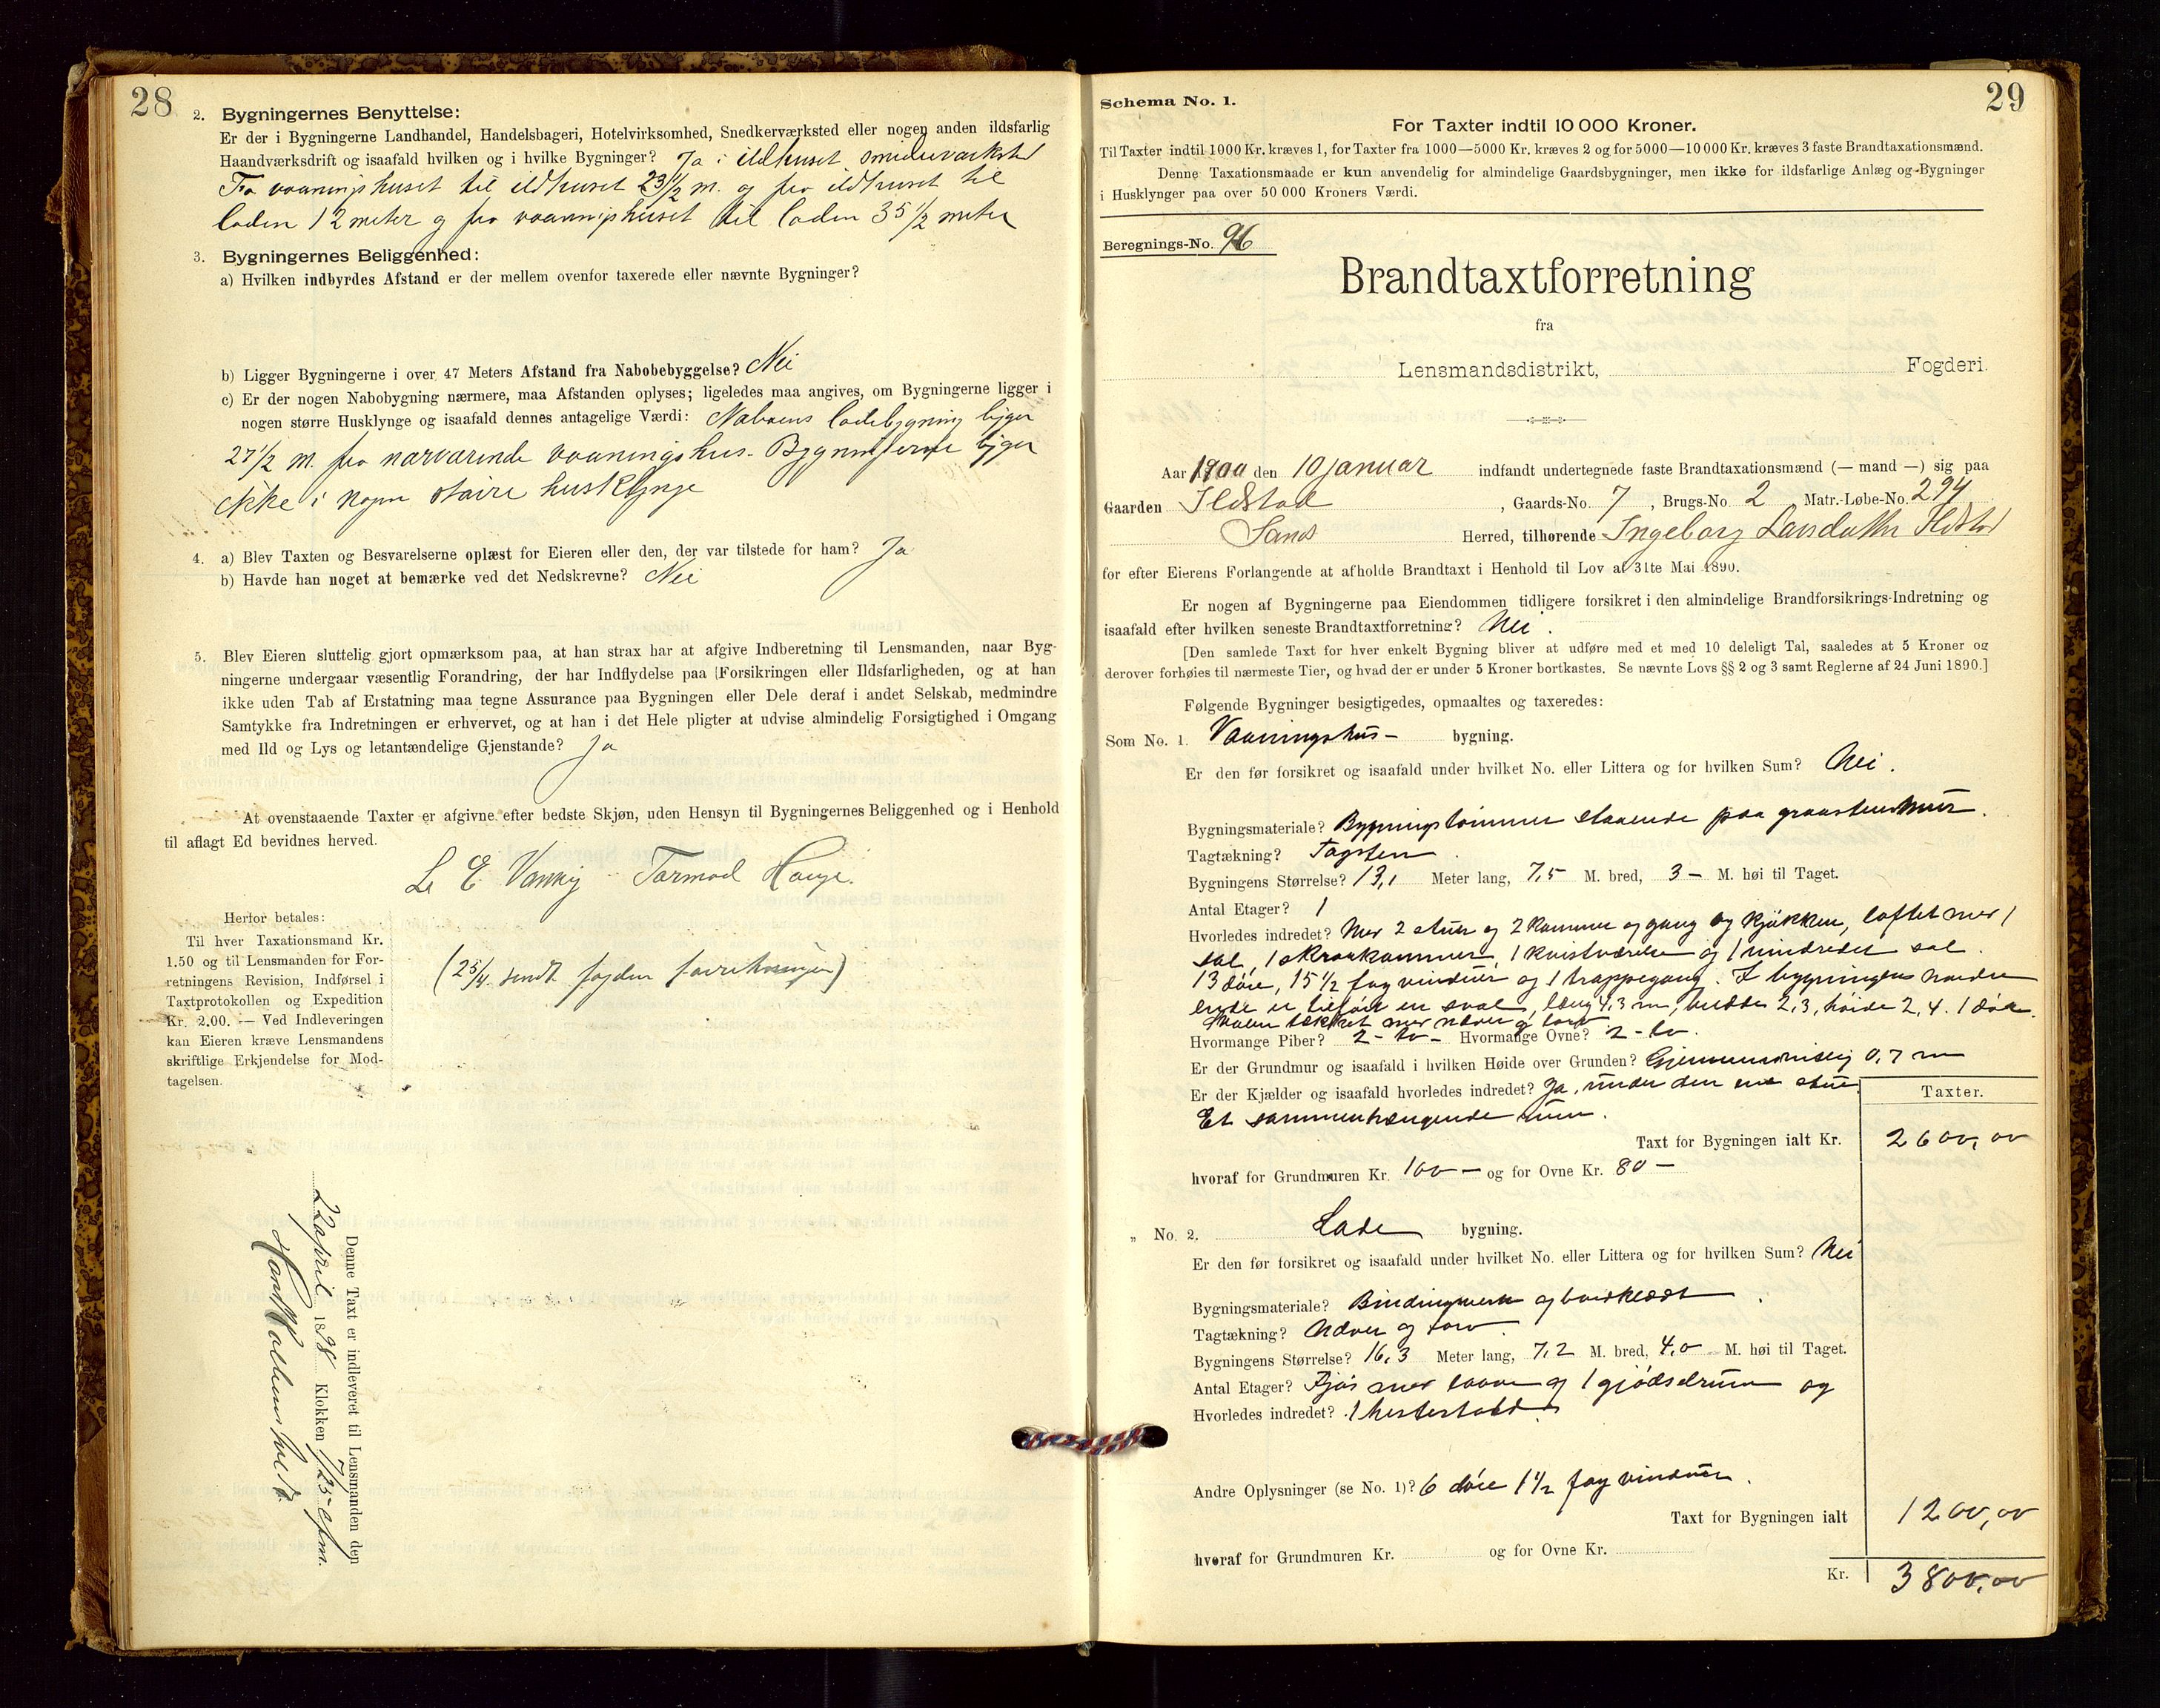 28
2. Bygningernes Benyttelse:
Er der i Bygningerne Landhandel, Handelsbageri, Hotelvirksomhed, Snedkerværksted eller nogen anden ildsfarlig
Haandværksdrift og isaafald hvilken og i hvilke Bygninger? Ja i ildhuset smideværksted
Fra vaaningshuset til ildhuset 23 1/2 m. og fra ildhuset til
laden 12 meter og fra vaaningshuset til laden 35 1/2 meter
3. Bygningernes Beliggenhed:
a) Hvilken indbyrdes Afstand er der mellem ovenfor taxerede eller nævnte Bygninger?
b) Ligger Bygningerne i over 47 Meters Afstand fra Nabobebyggelse? Nei
c) Er der nogen Nabobygning nærmere, maa Afstanden oplyses; ligeledes maa angives, om Bygningerne ligger i
nogen større Husklynge og isaafald dennes antagelige Værdi: Naboens ladebygning ligger
27 1/2 m. fra nærværende vaaningshus. Bygningerne ligger
ikke i nogen støire husklynge
4. a) Blev Taxten og Besvarelserne oplæst for Eieren eller den, der var tilstede for ham? Ja
b) Havde han noget at bemærke ved det Nedskrevne? Nei
5. Blev Eieren sluttelig gjort opmærksom paa, at han strax har at afgive Indberetning til Lensmanden, naar Byg-
ningerne undergaar væsentlig Forandring, der har Indflydelse paa Forsikringen eller Ildsfarligheden, og at han
ikke uden Tab af Erstatning maa tegne Assurance paa Bygningen eller Dele deraf i andet Selskab, medmindre
Samtykke fra Indretningen er erhvervet, og at han i det Hele pligter at udvise almindelig Forsigtighed i Omgang
med Ild og Lys og letantændelige Gjenstande? Ja
At ovenstaaende Taxter er afgivne efter bedste Skjøn, uden Hensyn til Bygningernes Beliggenhed og i Henhold
til aflagt Ed bevidnes herved.
L E Vanvig Tormod Hauge.
Herfor betales:
Til hver Taxationsmand Kr.
1.50 og til Lensmanden for For-
retningens Revision, Indførsel i
Taxtprotokollen og Expedition
Kr. 2.00. — Ved Indleveringen
kan Eieren kræve Lensmandens
skriftlige Erkjendelse for Mod-
tagelsen.
(25/4. sendt fogden forretningen)
Denne Taxt er indleveret til Lensmanden den
22 april 1898 Klokken 7/25 efm.
29
Schema No. 1.
For Taxter indtil 10 000 Kroner.
Til Taxter indtil 1000 Kr. kræves 1, for Taxter fra 1000—5000 Kr. kræves 2 og for 5000—10 000 Kr. kræves 3 faste Brandtaxationsmænd.
Denne Taxationsmaade er kun anvendelig for almindelige Gaardsbygninger, men ikke for ildsfarlige Anlæg og Bygninger
i Husklynger paa over 50 000 Kroners Værdi.
Beregnings-No. 96
Brandtaxtforretning
fra
Lensmandsdistrikt, Fogderi.
Aar 1900 den 10 januar indfandt undertegnede faste Brandtaxationsmænd (— mand —) sig paa
Gaarden Ilstad, Gaards-No. 7, Brugs-No. 2 Matr.-Løbe-No. 294
Sand Herred, tilhørende Ingeborg Larsdatter Ilstad
for efter Eierens Forlangende at afholde Brandtaxt i Henhold til Lov af 31te Mai 1890.
Er nogen af Bygningerne paa Eiendommen tidligere forsikret i den almindelige Brandforsikrings-Indretning og
isaafald efter hvilken seneste Brandtaxtforretning? Nei.
[Den samlede Taxt for hver enkelt Bygning bliver at udføre med et med 10 deleligt Tal, saaledes at 5 Kroner og
derover forhøies til nærmeste Tier, og hvad der er under 5 Kroner bortkastes. Se nævnte Lovs §§ 2 og 3 samt Reglerne af 24 Juni 1890.]
Følgende Bygninger besigtigedes, opmaaltes og taxeredes:
Som No. 1. Vaaningshus- bygning.
Er den før forsikret og isaafald under hvilket No. eller Littera og for hvilken Sum? Nei.
Bygningsmateriale? Bygningstømmer staaende paa graastensmur.
Tagtækning? Tagsten.
Bygningens Størrelse? 13,1 Meter lang, 7,5 M. bred, 3 — M. høi til Taget.
Antal Etager? 1
Hvorledes indredet? Med 2 stuer og 2 kammer og gang og kjøkken, loftet med 1
sal, 1 skraakammer, 1 kvistværelse og 1 uindredet sal.
13 døre, 15 1/2 fag vinduer og 1 trappegang. I bygningens nordre
ende er tilføiet en sval, læng 4,3 m, bredde 2,3, høide 2,4. 1 dør.
Svalen tækket med næver og torv
Hvormange Piber? 2 - to - Hvormange Ovne? 2 - to.
Er der Grundmur og isaafald i hvilken Høide over Grunden? Gjennemsnitlig 0,7 m
Er der Kjælder og isaafald hvorledes indredet? Ja, under den ene stue
Et sammenhængende rum.
Taxter.
Taxt for Bygningen ialt Kr. 2600,00
hvoraf for Grundmuren Kr. 100 — og for Ovne Kr. 80 —
„ No. 2. Lade bygning.
Er den før forsikret og isaafald under hvilket No. eller Littera og for hvilken Sum? Nei
Bygningsmateriale? Bindingsverk og bordklædt.
Tagtækning? Næver og torv.
Bygningens Størrelse? 16,3 Meter lang, 7,2 M. bred, 4,0 M. høi til Taget.
Antal Etager? Fjøs med laave og 1 gjødselrum og
Hvorledes indredet? 1 hestestald.
Andre Oplysninger (se No. 1)? 6 døre 1 1/2 fag vinduer.
Taxt for Bygningen ialt 1200,00
hvoraf for Grundmuren Kr. og for Ovne Kr.
Kr. 3800,00